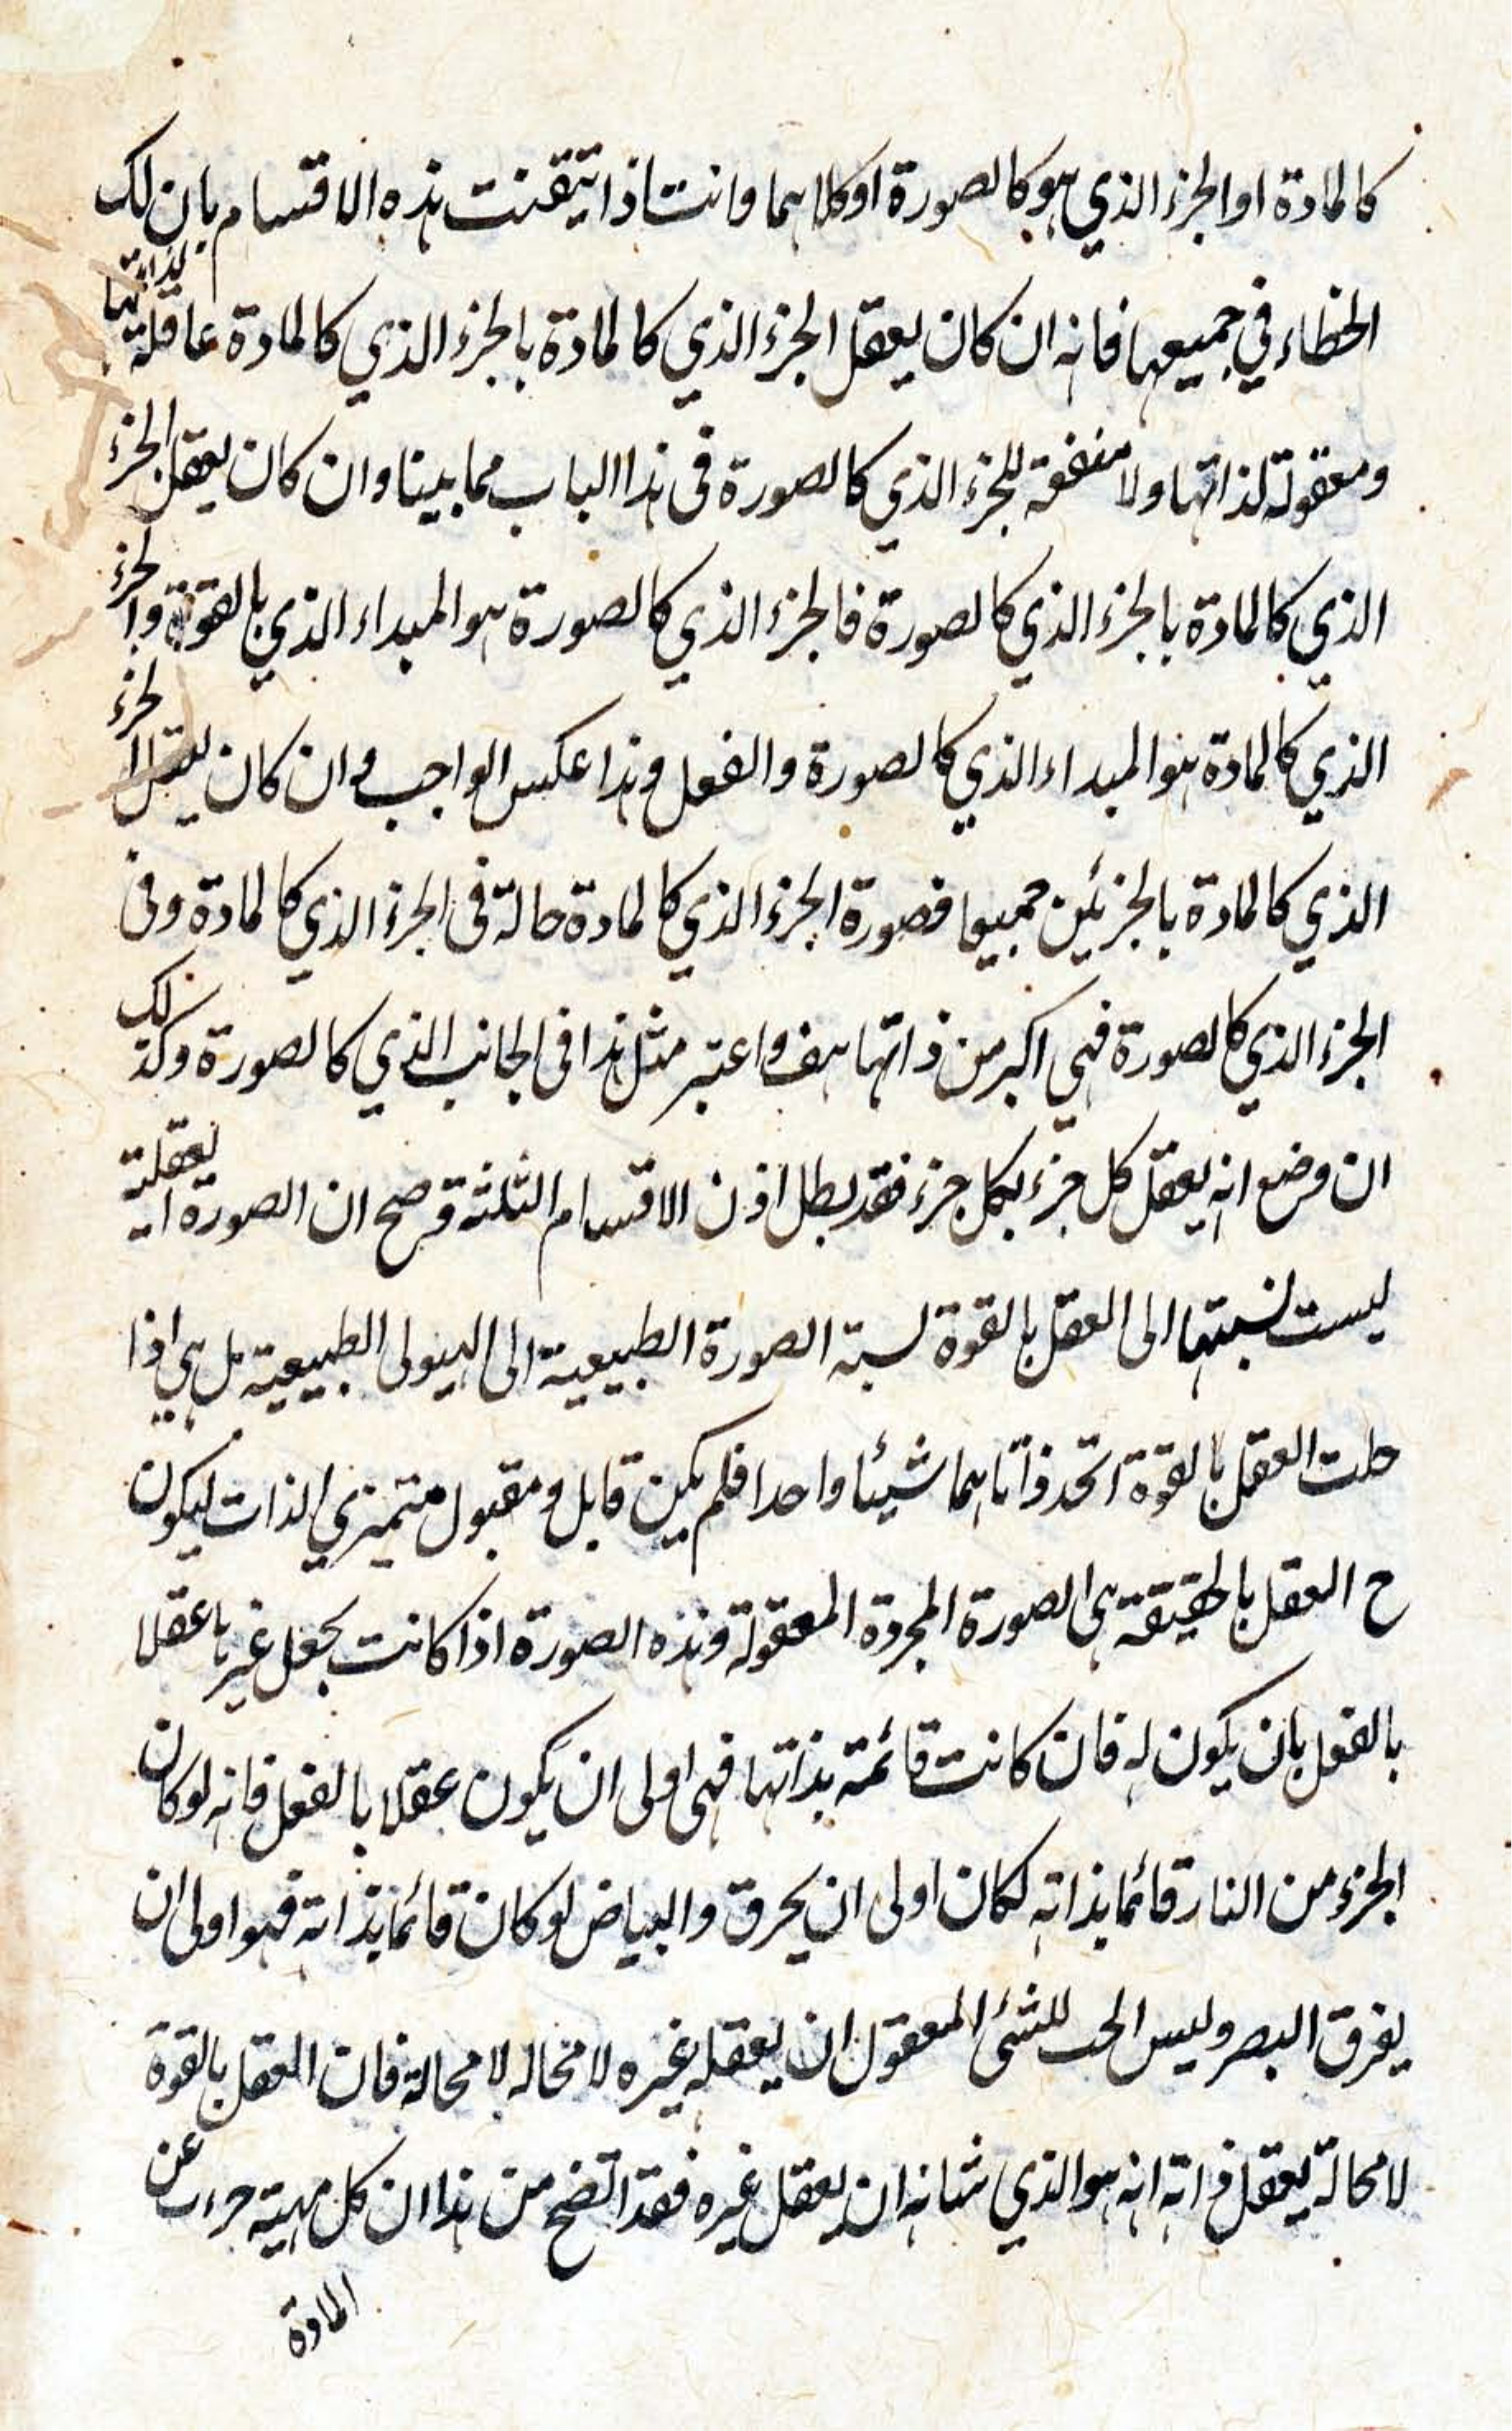 كالمادة او الجزء الذي هو كالصورة او كلاهما وانت اذا تيقنت هذه الاقسام بان لك
الخطاء في جميعها فانه ان كان يعقل الجزء الذي كالمادة بالجزء الذي كالمادة عاقلة لذاتها
ومعقولة لذاتها ولا منفعة للجزء الذي كالصورة فى هذا الباب مما بينا وان كان يعقل الجزء
الذي كالمادة بالجزء الذي كالصورة فالجزء الذي كالصورة هو المبداء الذي بالقوة والجزء
الذي كالمادة هو المبداء الذي كالصورة والفعل وهذا عكس الواجب وان كان يعقل الجزء
الذي كالمادة بالجزئين جميعا فصورة الجزء الذي كالمادة حالة فى الجزء الذي كالمادة وفى
الجزء الذي كالصورة فهي اكبر من ذاتها هف واعتبر مثل هذا فى الجانب الذي كالصورة وكذلك
ان وضع انه يعقل كل جزء بكل جزء فقد بطل اذن الاقسام الثلثة وصح ان الصورة العقلية
ليست نسبتها الى العقل بالقوة نسبة الصورة الطبيعية الى الهيولى الطبيعية بل هي اذا
حلت العقل بالقوة اتحد ذاتاهما شيئا واحدا فلم يكن قابل ومقبول متميزي الذات ليكون
ح العقل بالحقيقة هى الصورة المجردة المعقولة وهذه الصورة اذا كانت بجعل غيرها عقلا
بالفعل بان يكون له فان كانت قائمة بذاتها فهى اولى ان يكون عقلا بالفعل فانه لو كان
الجزء من النار قائما بذاته لكان اولى ان يحرق والبياض لو كان قائما بذاته فهو اولى ان
يفرق البصر وليس الحب للشئ المعقول ان يعقله غيره لا محاله لا محالة فان العقل بالقوة
لا محالة يعقل ذاته انه هو الذي شانه ان يعقل غيره فقد اتضح من هذا ان كل مهية جردت عن
المادة